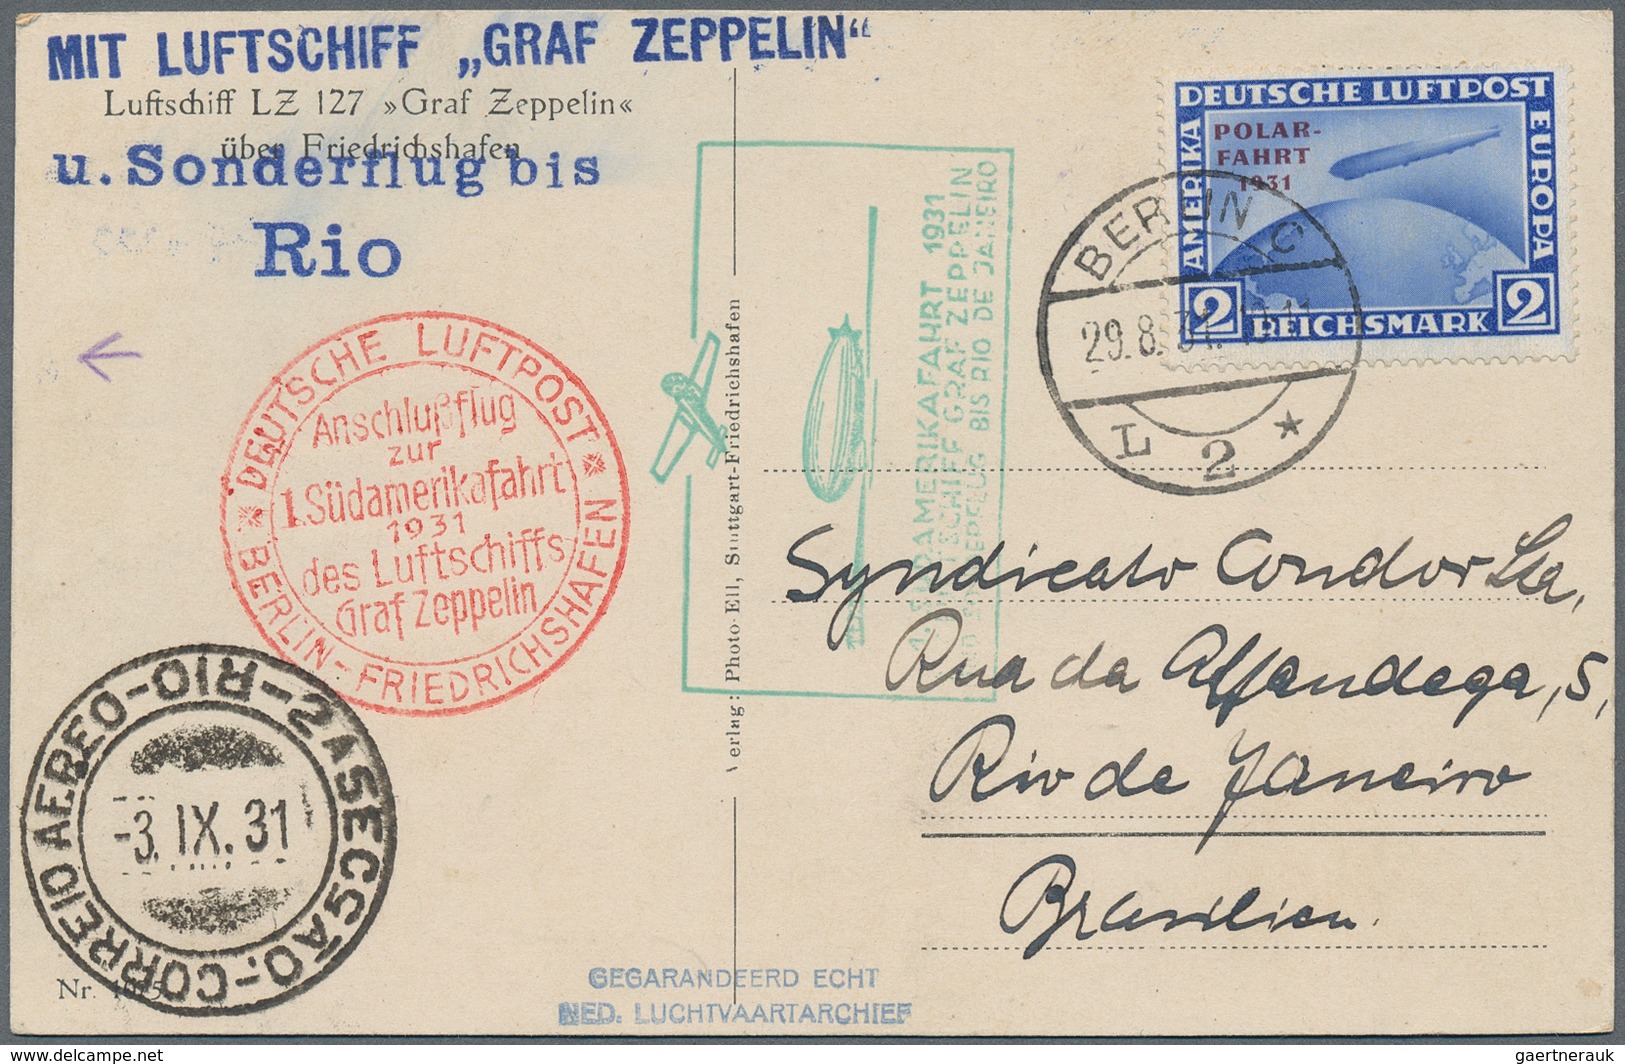 MIT LUFTSCHIFF „GRAF ZEPPELIN“
Luftschiff LZ 127 »Graf Zeppelin«
über Friedrichshafen
u. Sonderflug bis
Rio
DEUTSCHE LUFTPOST
Anschlußflug
zur
1. Südamerikafahrt
1931
des Luftschiffs
Graf Zeppelin
BERLIN - FRIEDRICHSHAFEN
CORREIO AEREO - RIO - 2A SECSÃO.
-3. IX. 31
Nr.
Verlag: Photo-Ell, Stuttgart-Friedrichshafen
1. SÜDAMERIKAFAHRT 1931
LUFTSCHIFF GRAF ZEPPELIN
BIS RIO DE JANEIRO
DEUTSCHE LUFTPOST
AMERIKA
EUROPA
POLAR-
FAHRT
1931
2 REICHSMARK 2
BERLIN C
29.8.31.
L 2 *
Syndicato Condor Lda,
Rua da Alfandega, 5,
Rio de Janeiro
Brasilien.
GEGARANDEERD ECHT
NED. LUCHTVAARTARCHIEF
delcampe.net
gaertnerauk